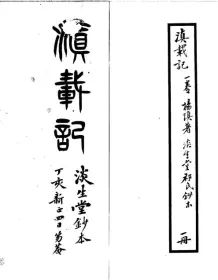 滇載記
一卷
楊慎著
淡生堂祁氏鈔本
一冊
滇載記
淡生堂鈔本
丁亥新正四日